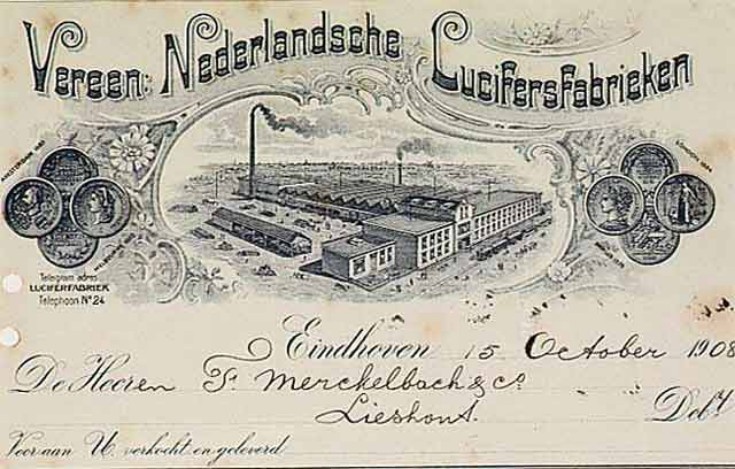 Vereen: Nederlandsche Lucifersfabrieken
AMSTERDAM 1883
LONDON 1884
Telegram adres
LUCIFERFABRIEK
Telephoon Nº 24
Eindhoven 15 October 1908
De Heeren F. Merckelbach & Cº
Lieshout. Debt
Voor aan U. verkocht en geleverd